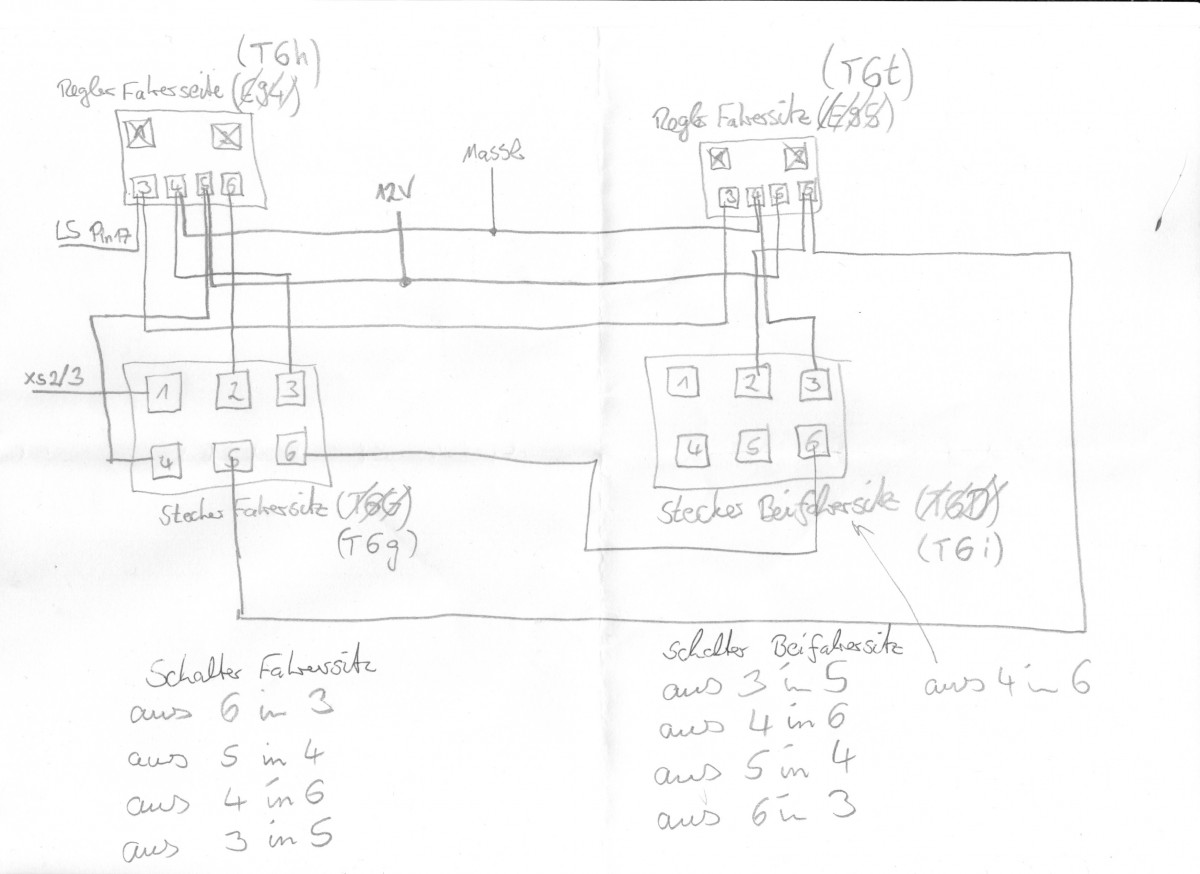 (T6h)
Regler Fahrerseite (E94)
1 2
3 4 5 6
LS Pin 17
12V
Masse
(T6t)
Regler Fahrersitz (E95)
1 2
3 4 6 5
xs2/3
1 2 3
4 5 6
Stecker Fahrersitz (T6G)
(T6g)
1 2 3
4 5 6
Stecker Beifahrersitz (T6D)
(T6i)
Schalter Fahrersitz
aus 6 in 3
aus 5 in 4
aus 4 in 6
aus 3 in 5
Schalter Beifahrersitz
aus 3 in 5
aus 4 in 6
aus 4 in 6
aus 5 in 4
aus 6 in 3